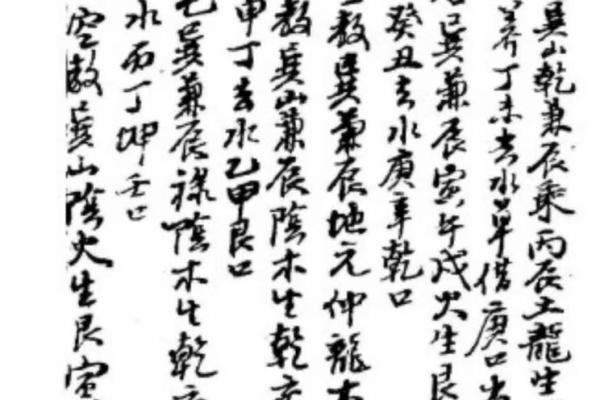 巽山乾兼辰乘丙辰土龍生
丁未去水単借庚口
巳巽兼辰寅午戌火生艮
癸丑去水庚辛乾口
教巽兼辰地元仲龍
教巽山兼辰陰木生乾
甲丁去水乙甲艮口
巽兼辰禄陰木生乾
水丙丁坤壬口
空教巽山陰火生艮寅